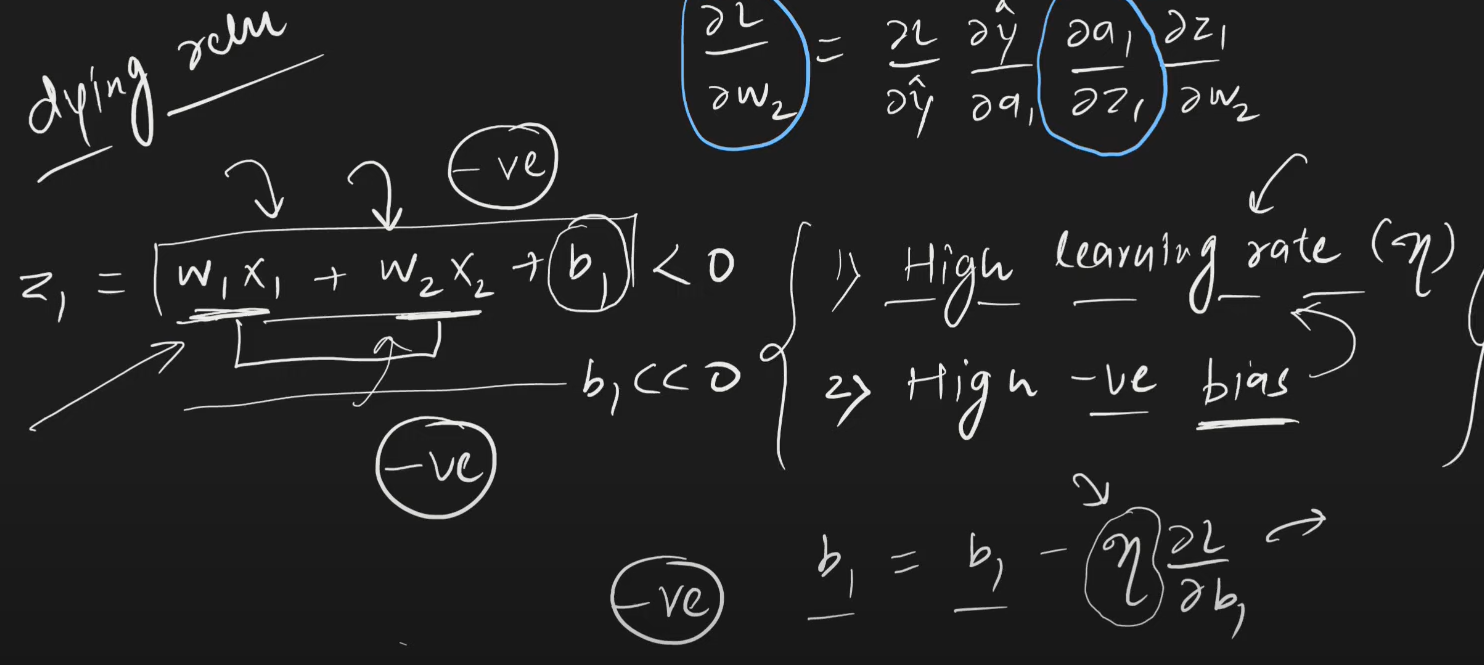 dying relu
∂L/∂w₂ = ∂L/∂ŷ ∂ŷ/∂a₁ ∂a₁/∂z₁ ∂z₁/∂w₂
-ve
z₁ = w₁x₁ + w₂x₂ + b₁ < 0
b₁ << 0
-ve
1) High learning rate (η)
2) High -ve bias
-ve
b₁ = b₁ - η ∂L/∂b₁